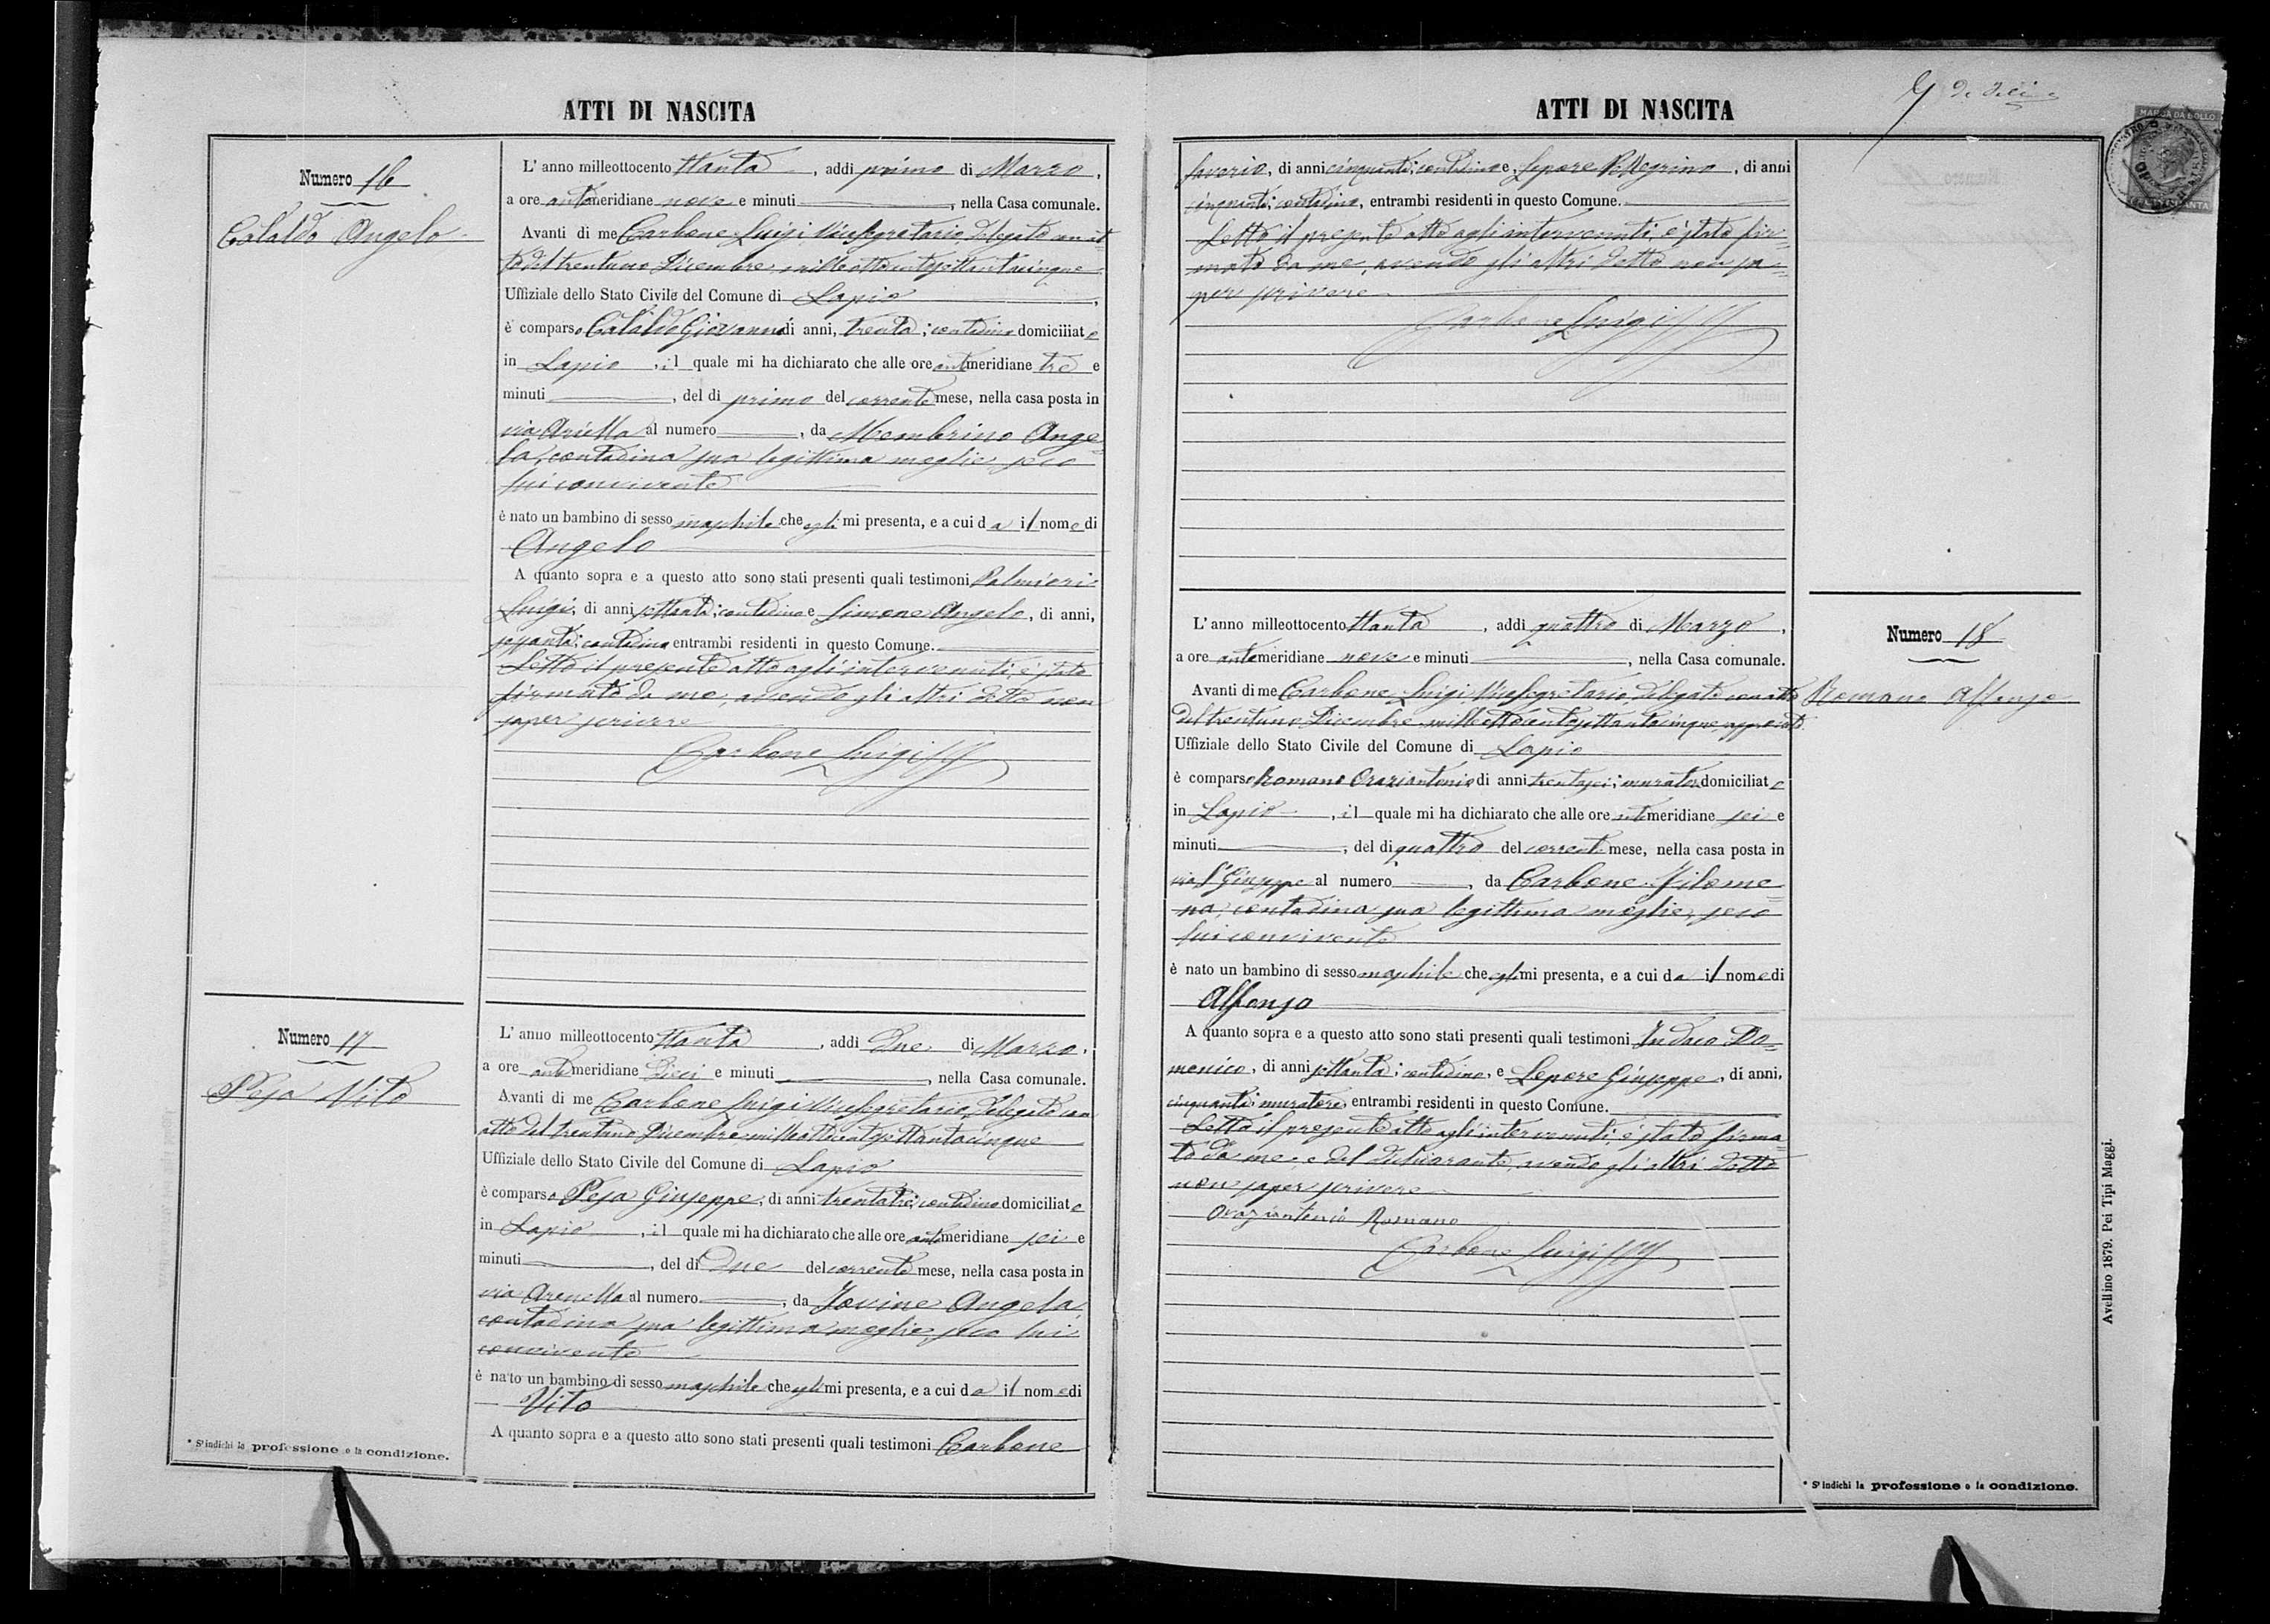 ATTI DI NASCITA
Numero 16
Cataldo Angelo
L' anno milleottocento ttanta, addi primo di Marzo,
a ore antimeridiane nove e minuti, nella Casa comunale.
Avanti di me Carbone Luigi Vicesegretario, delegato con at=
to del trentuno Dicembre milleottocentosettantacinque
Uffiziale dello Stato Civile del Comune di Lapio,
è comparso Cataldo Giovanni di anni, trenta; contadino domiciliato
in Lapio, il quale mi ha dichiarato che alle ore antimeridiane tre e
minuti, del di primo del corrente mese, nella casa posta in
via Ariella al numero, da Membrino Ange=
la, contadina sua legittima moglie, seco
lui convivente
è nato un bambino di sesso maschile che egli mi presenta, e a cui da il nome di
Angelo
A quanto sopra e a questo atto sono stati presenti quali testimoni Palmieri
Luigi, di anni settanta; contadino e Simone Angelo, di anni,
sessanta; contadino entrambi residenti in questo Comune.
Letto il presente atto agli intervenuti, è stato
firmato da me, avendo gli altri detto non
saper scrivere
Carbone Luigi
Numero 17
Pesa Vito
L' anno milleottocento ttanta, addi due di Marzo,
a ore antimeridiane dieci e minuti, nella Casa comunale.
Avanti di me Carbone Luigi Vicesegretario, delegato con
atto del trentuno Dicembre milleottocentosettantacinque
Uffiziale dello Stato Civile del Comune di Lapio
è comparso Pesa Giuseppe, di anni trentatre; contadino domiciliato
in Lapio, il quale mi ha dichiarato che alle ore antimeridiane sei e
minuti, del di due del corrente mese, nella casa posta in
via Arenella al numero, da Jovine Angela,
contadina sua legittima moglie, seco lui
convivente
è nato un bambino di sesso maschile che egli mi presenta, e a cui da il nome di
Vito
A quanto sopra e a questo atto sono stati presenti quali testimoni Carbone
* S'indichi la professione o la condizione.
ATTI DI NASCITA
MARCA DA BOLLO
Saverio, di anni cinquanta; contadino e Lepore Pellegrino, di anni
cinquanta; contadino, entrambi residenti in questo Comune.
Letto il presente atto agli intervenuti, è stato fir=
mato da me, avendo gli altri detto non sa=
per scrivere
Carbone Luigi
Numero 18
Romano Alfonso
L' anno milleottocento ttanta, addi quattro di Marzo,
a ore antimeridiane nove e minuti, nella Casa comunale.
Avanti di me Carbone Luigi Vicesegretario, delegato con atto
del trentuno Dicembre milleottocentosettantacinque, approvato
Uffiziale dello Stato Civile del Comune di Lapio
è comparso Romano Oraziantonio di anni trentasei; muratore domiciliato
in Lapio, il quale mi ha dichiarato che alle ore antimeridiane sei e
minuti, del di quattro del corrente mese, nella casa posta in
via S. Giuseppe al numero, da Carbone Filome=
na, contadina sua legittima moglie, seco
lui convivente
è nato un bambino di sesso maschile che egli mi presenta, e a cui da il nome di
Alfonso
A quanto sopra e a questo atto sono stati presenti quali testimoni Do=
menico, di anni settanta; contadino, e Lepore Giuseppe, di anni,
cinquanta; muratore, entrambi residenti in questo Comune.
Letto il presente atto agli intervenuti, è stato firma=
to da me, e dal dichiarante, avendo gli altri detto
non saper scrivere
Oraziantonio Romano
Carbone Luigi
* S'indichi la professione o la condizione.
Avellino 1879. Pei Tipi Maggi.